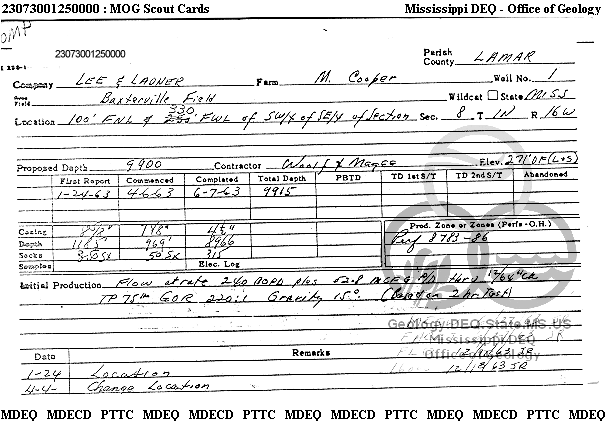 23073001250000 : MOG Scout Cards Mississippi DEQ - Office of Geology
23073001250000
Parish
County LAMAR
Company LEE & LADNER Farm M. Cooper Well No. 1
Area
Field Baxterville Field Wildcat State MISS
330
Location 100' FNL & FWL of SW/4 of SE/4 of Section Sec. 8 T. 1N R. 16W
Proposed Depth 9900 Contractor Woolf & Magee Elev. 271' DF (L+S)
First Report Commenced Completed Total Depth PBTD TD 1st S/T TD 2nd S/T Abandoned
1-24-63 4-6-63 6-7-63 9915
Casing 8 5/8" 4 1/2" Prod. Zone or Zones (Perfs - O.H.)
Depth 1185' 969' 8966 Perf 8783-86
Sacks 350SX 50SX 315
Samples Elec. Log
Initial Production Flow at rate 240 BOPD plus 52.8 MCFG P/D thru 12/64" CK
TP 75## GOR 220:1 Gravity 15° (Based on 2 hr. Test)
Geology.DEQ.State.MS.US
Mississippi DEQ
Office of Geology
12/18/63 JR
Date Remarks
1-24 Location
4-4- Change Location
MDEQ MDECD PTTC MDEQ MDECD PTTC MDEQ MDECD PTTC MDEQ MDECD PTTC MDEQ